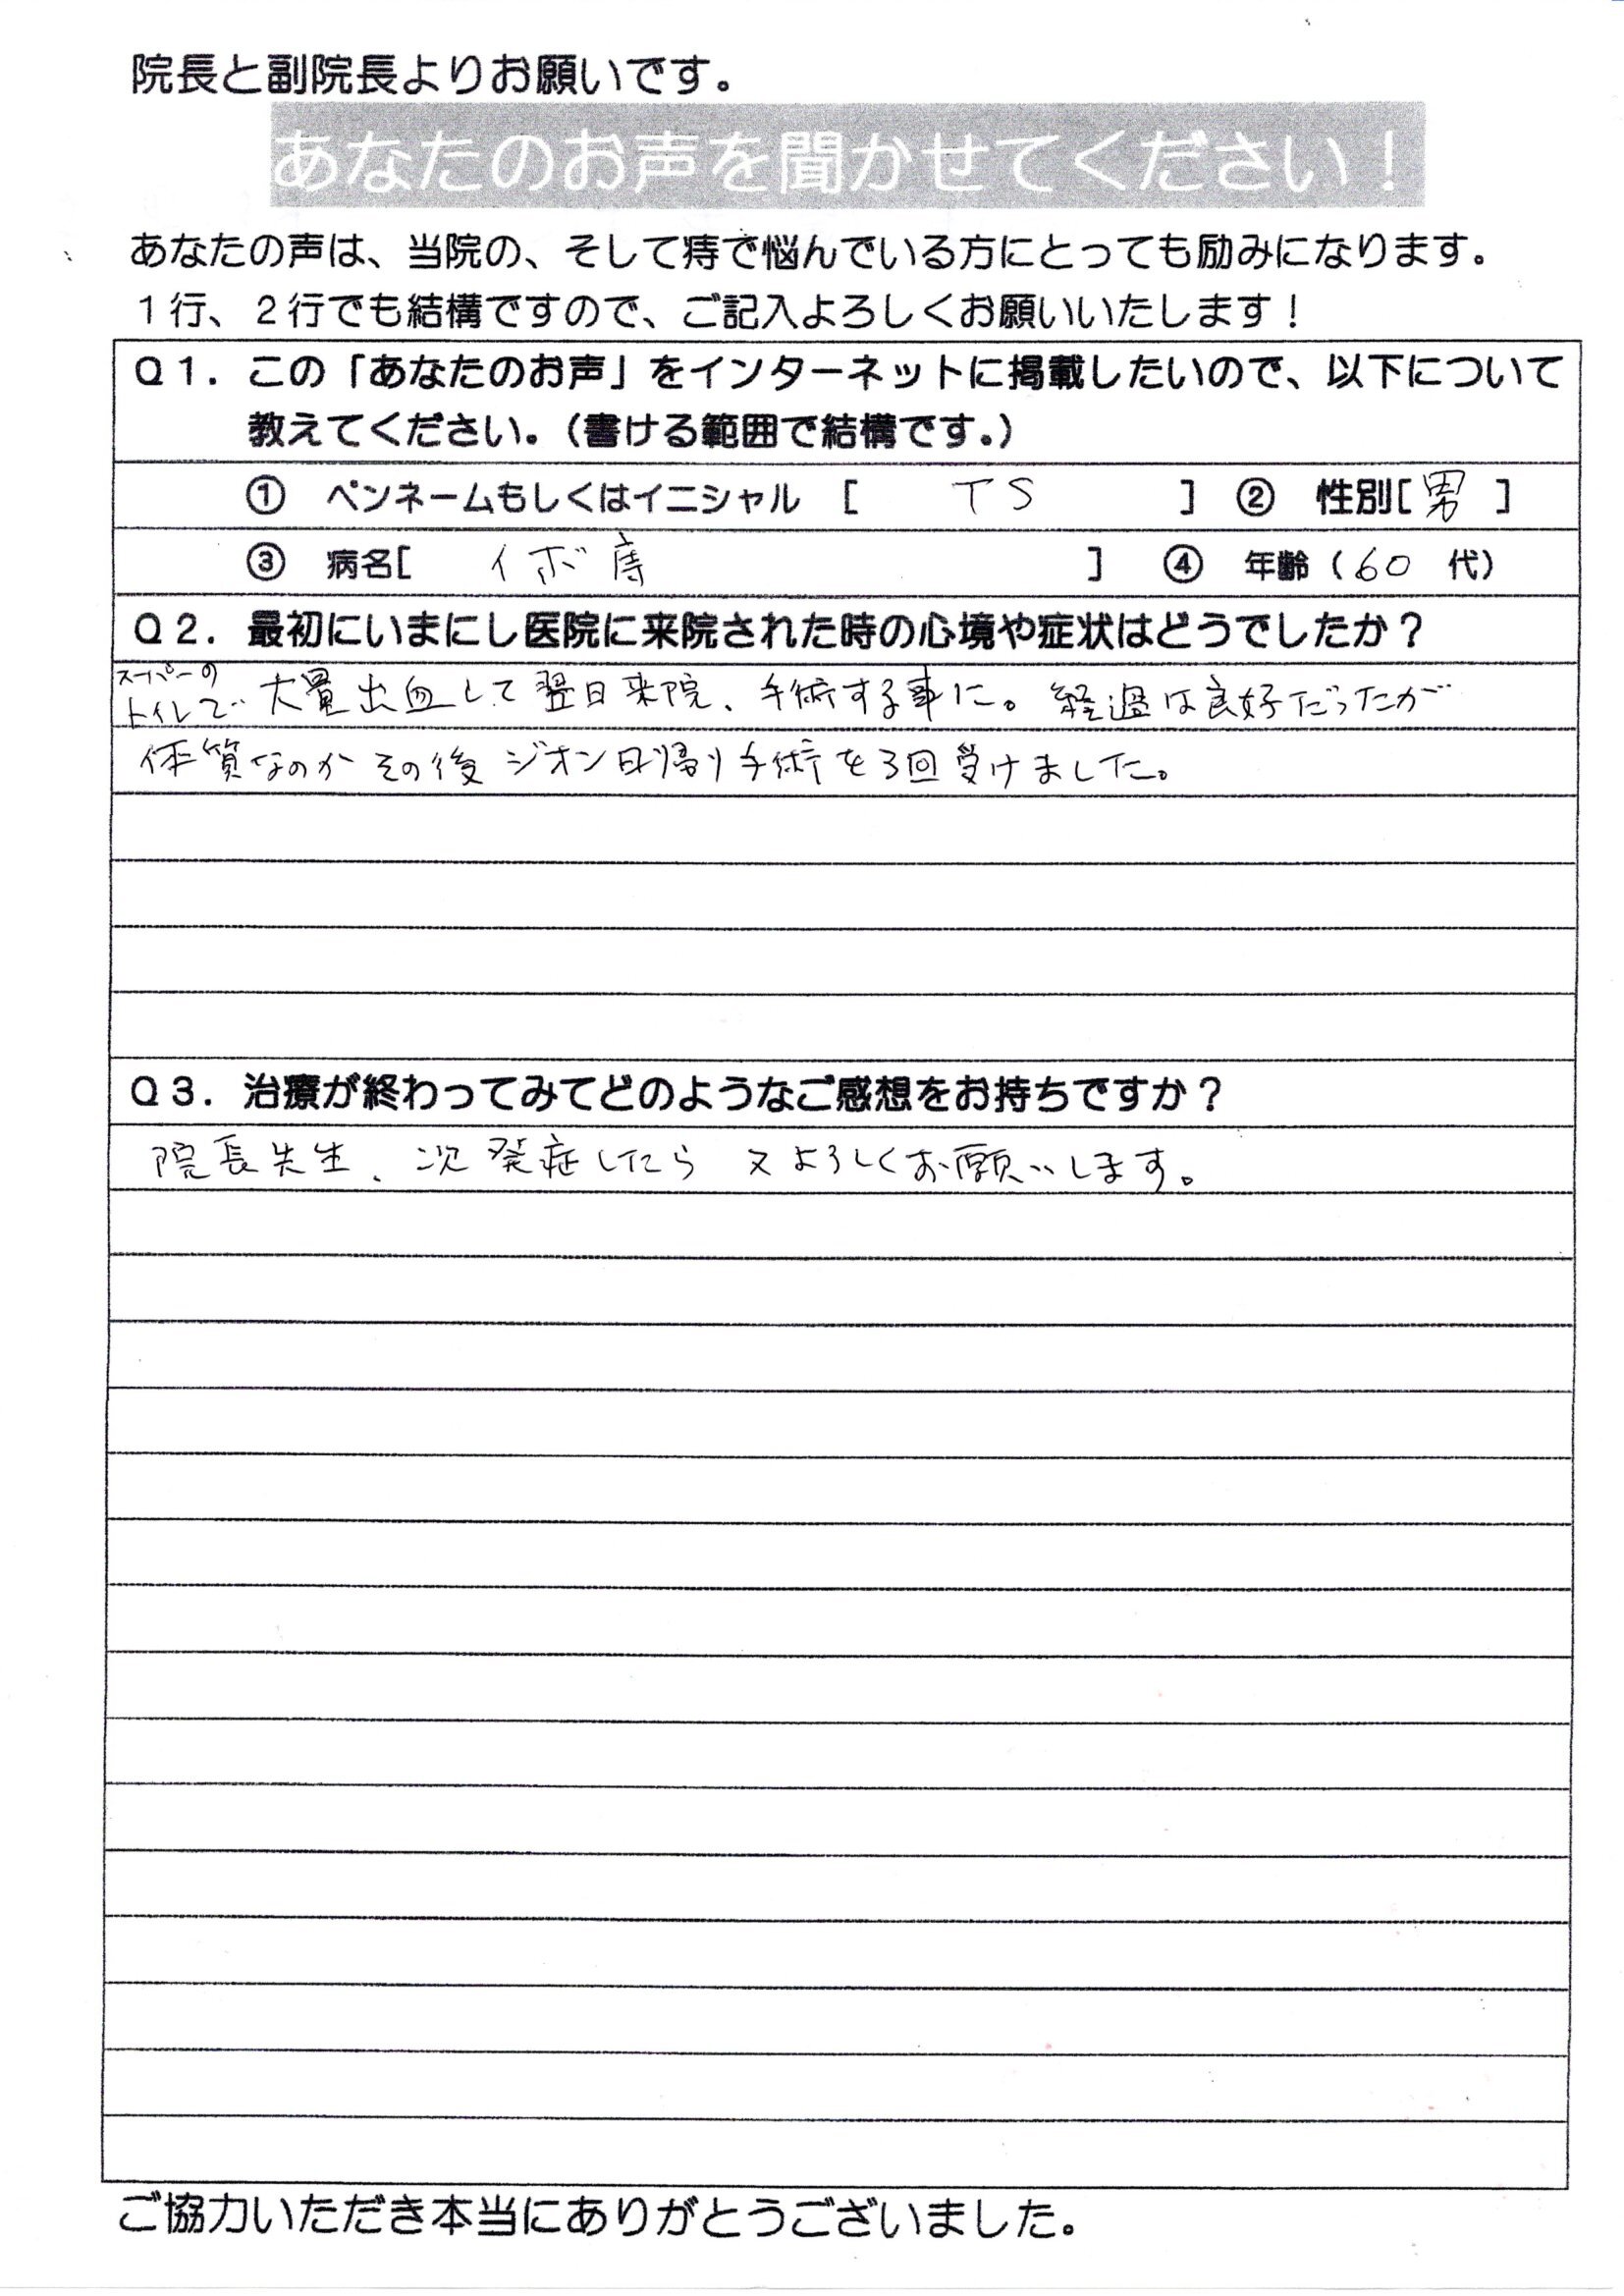 院長と副院長よりお願いです。
あなたのお声を聞かせてください！
あなたの声は、当院の、そして痔で悩んでいる方にとっても励みになります。
１行、２行でも結構ですので、ご記入よろしくお願いいたします！
Ｑ１．この「あなたのお声」をインターネットに掲載したいので、以下について
教えてください。（書ける範囲で結構です。）
① ペンネームもしくはイニシャル [ TS ] ② 性別[ 男 ]
③ 病名[ イボ痔 ] ④ 年齢（ 60 代）
Ｑ２．最初にいまにし医院に来院された時の心境や症状はどうでしたか？
スーパーの
トイレで 大量出血して翌日来院、手術する事に。経過は良好だったが
体質なのかその後ジオン日帰り手術を3回受けました。
Ｑ３．治療が終わってみてどのようなご感想をお持ちですか？
院長先生、次発症したら又よろしくお願いします。
ご協力いただき本当にありがとうございました。